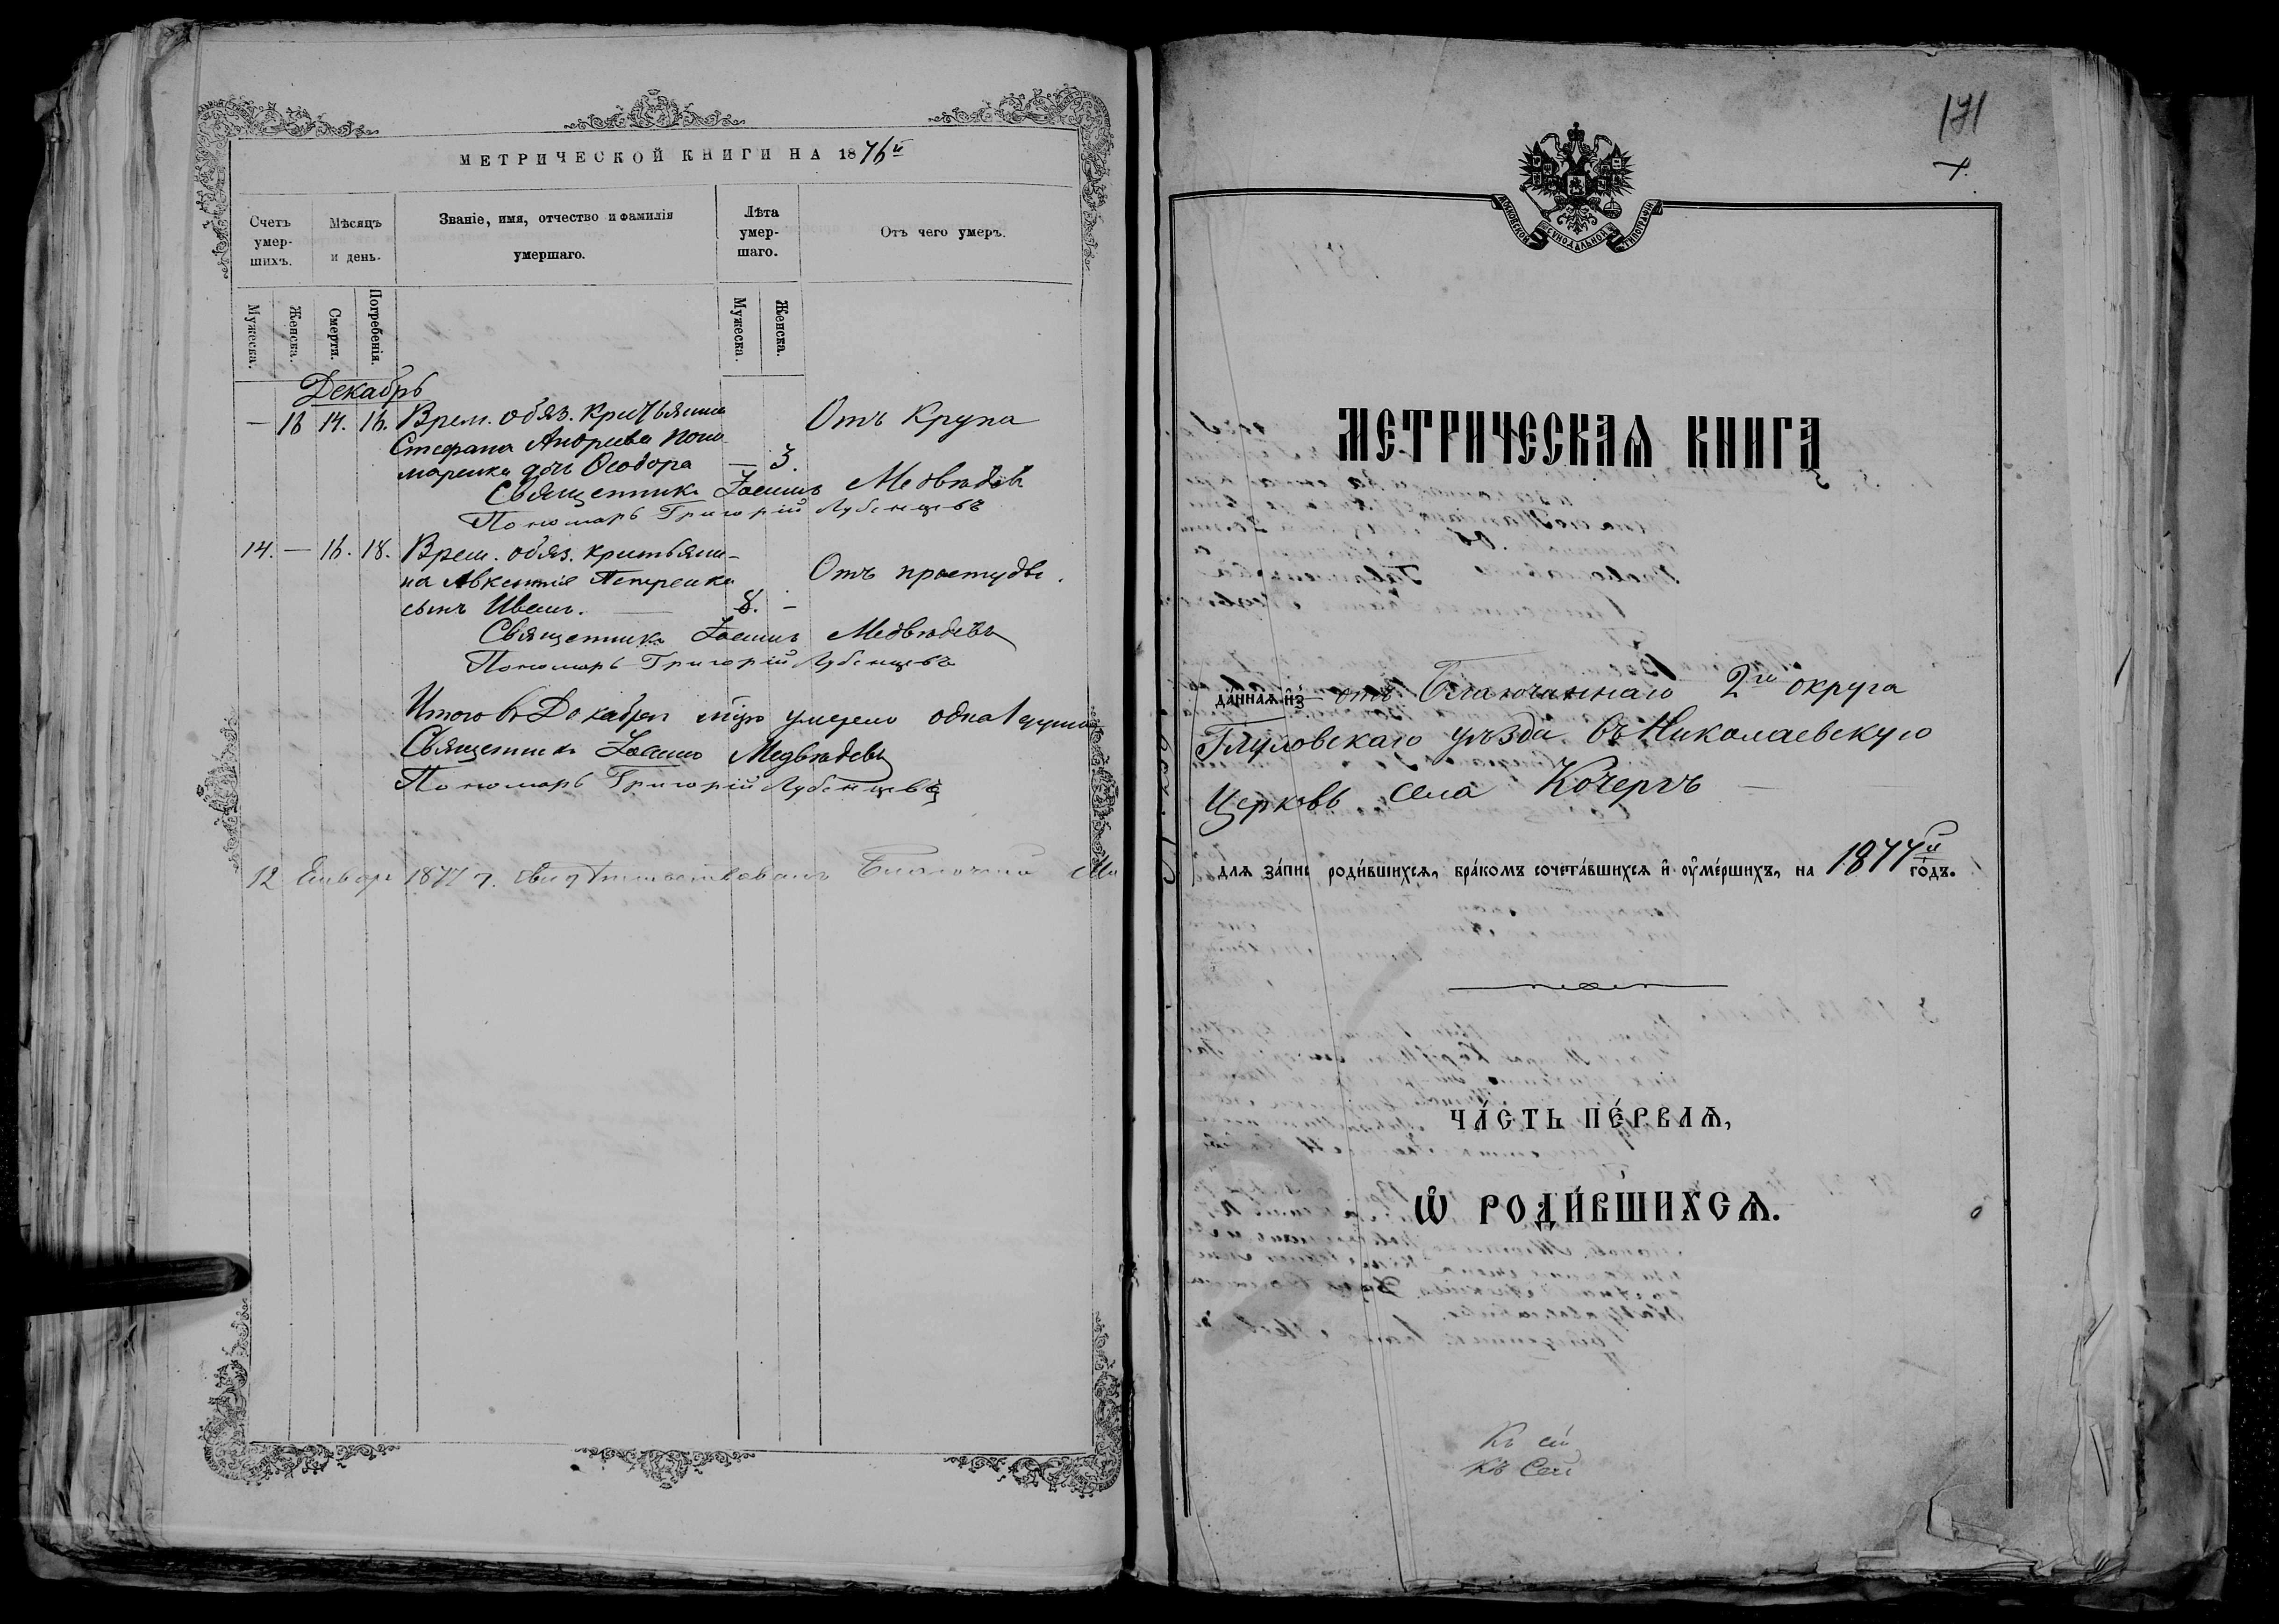 МЕТРИЧЕСКОЙ КНИГИ НА 1876й
Счетъ умер- шихъ.
Мѣсяцъ и день.
Званіе, имя, отчество и фамилія умершаго.
Лѣта умер- шаго.
Отъ чего умеръ.
Мужеска.
Женска.
Смерти.
Погребенія.
Мужеска.
Женска.
Декабрь
— 16 14. 16. Врем. обяз. крестьянина Отъ крупа
Стефана Андреева Поно-
маренка дочь Ѳеодора — 3.
Священникъ Іоаннъ Медвѣдевъ
Пономарь Григорій Лубенцевъ
14. — 16. 18. Врем. обяз. крестьяни-
на Авксентія Петренка Отъ простуды.
сынъ Иванъ. 8. —
Священникъ Іоаннъ Медвѣдевъ
Пономарь Григорій Лубенцевъ
Итого въ Декабрѣ умерло одна 1 душа
Священникъ Іоаннъ Медвѣдевъ
Пономарь Григорій Лубенцевъ
12 Января 1877 г. свидѣтельствовалъ Благочинный
171
МОСКОВСКОЙ СѴНОДАЛЬНОЙ ТИПОГРАФІИ
МЕТРИЧЕСКАѦ КНИГА
да́ннаѧ и҆з̾ отъ Благочиннаго 2го округа
Глуховскаго уѣзда въ Николаевскую
Церковь села Кочергъ
для за́писи роди́вшихсѧ, бра́комъ сочета́вшихсѧ и҆ оу҆ме́ршихъ, на 1877й го́дъ.
ЧА́СТЬ ПЕ́РВАѦ,
Ѡ҆ РОДИ́ВШИХСѦ.